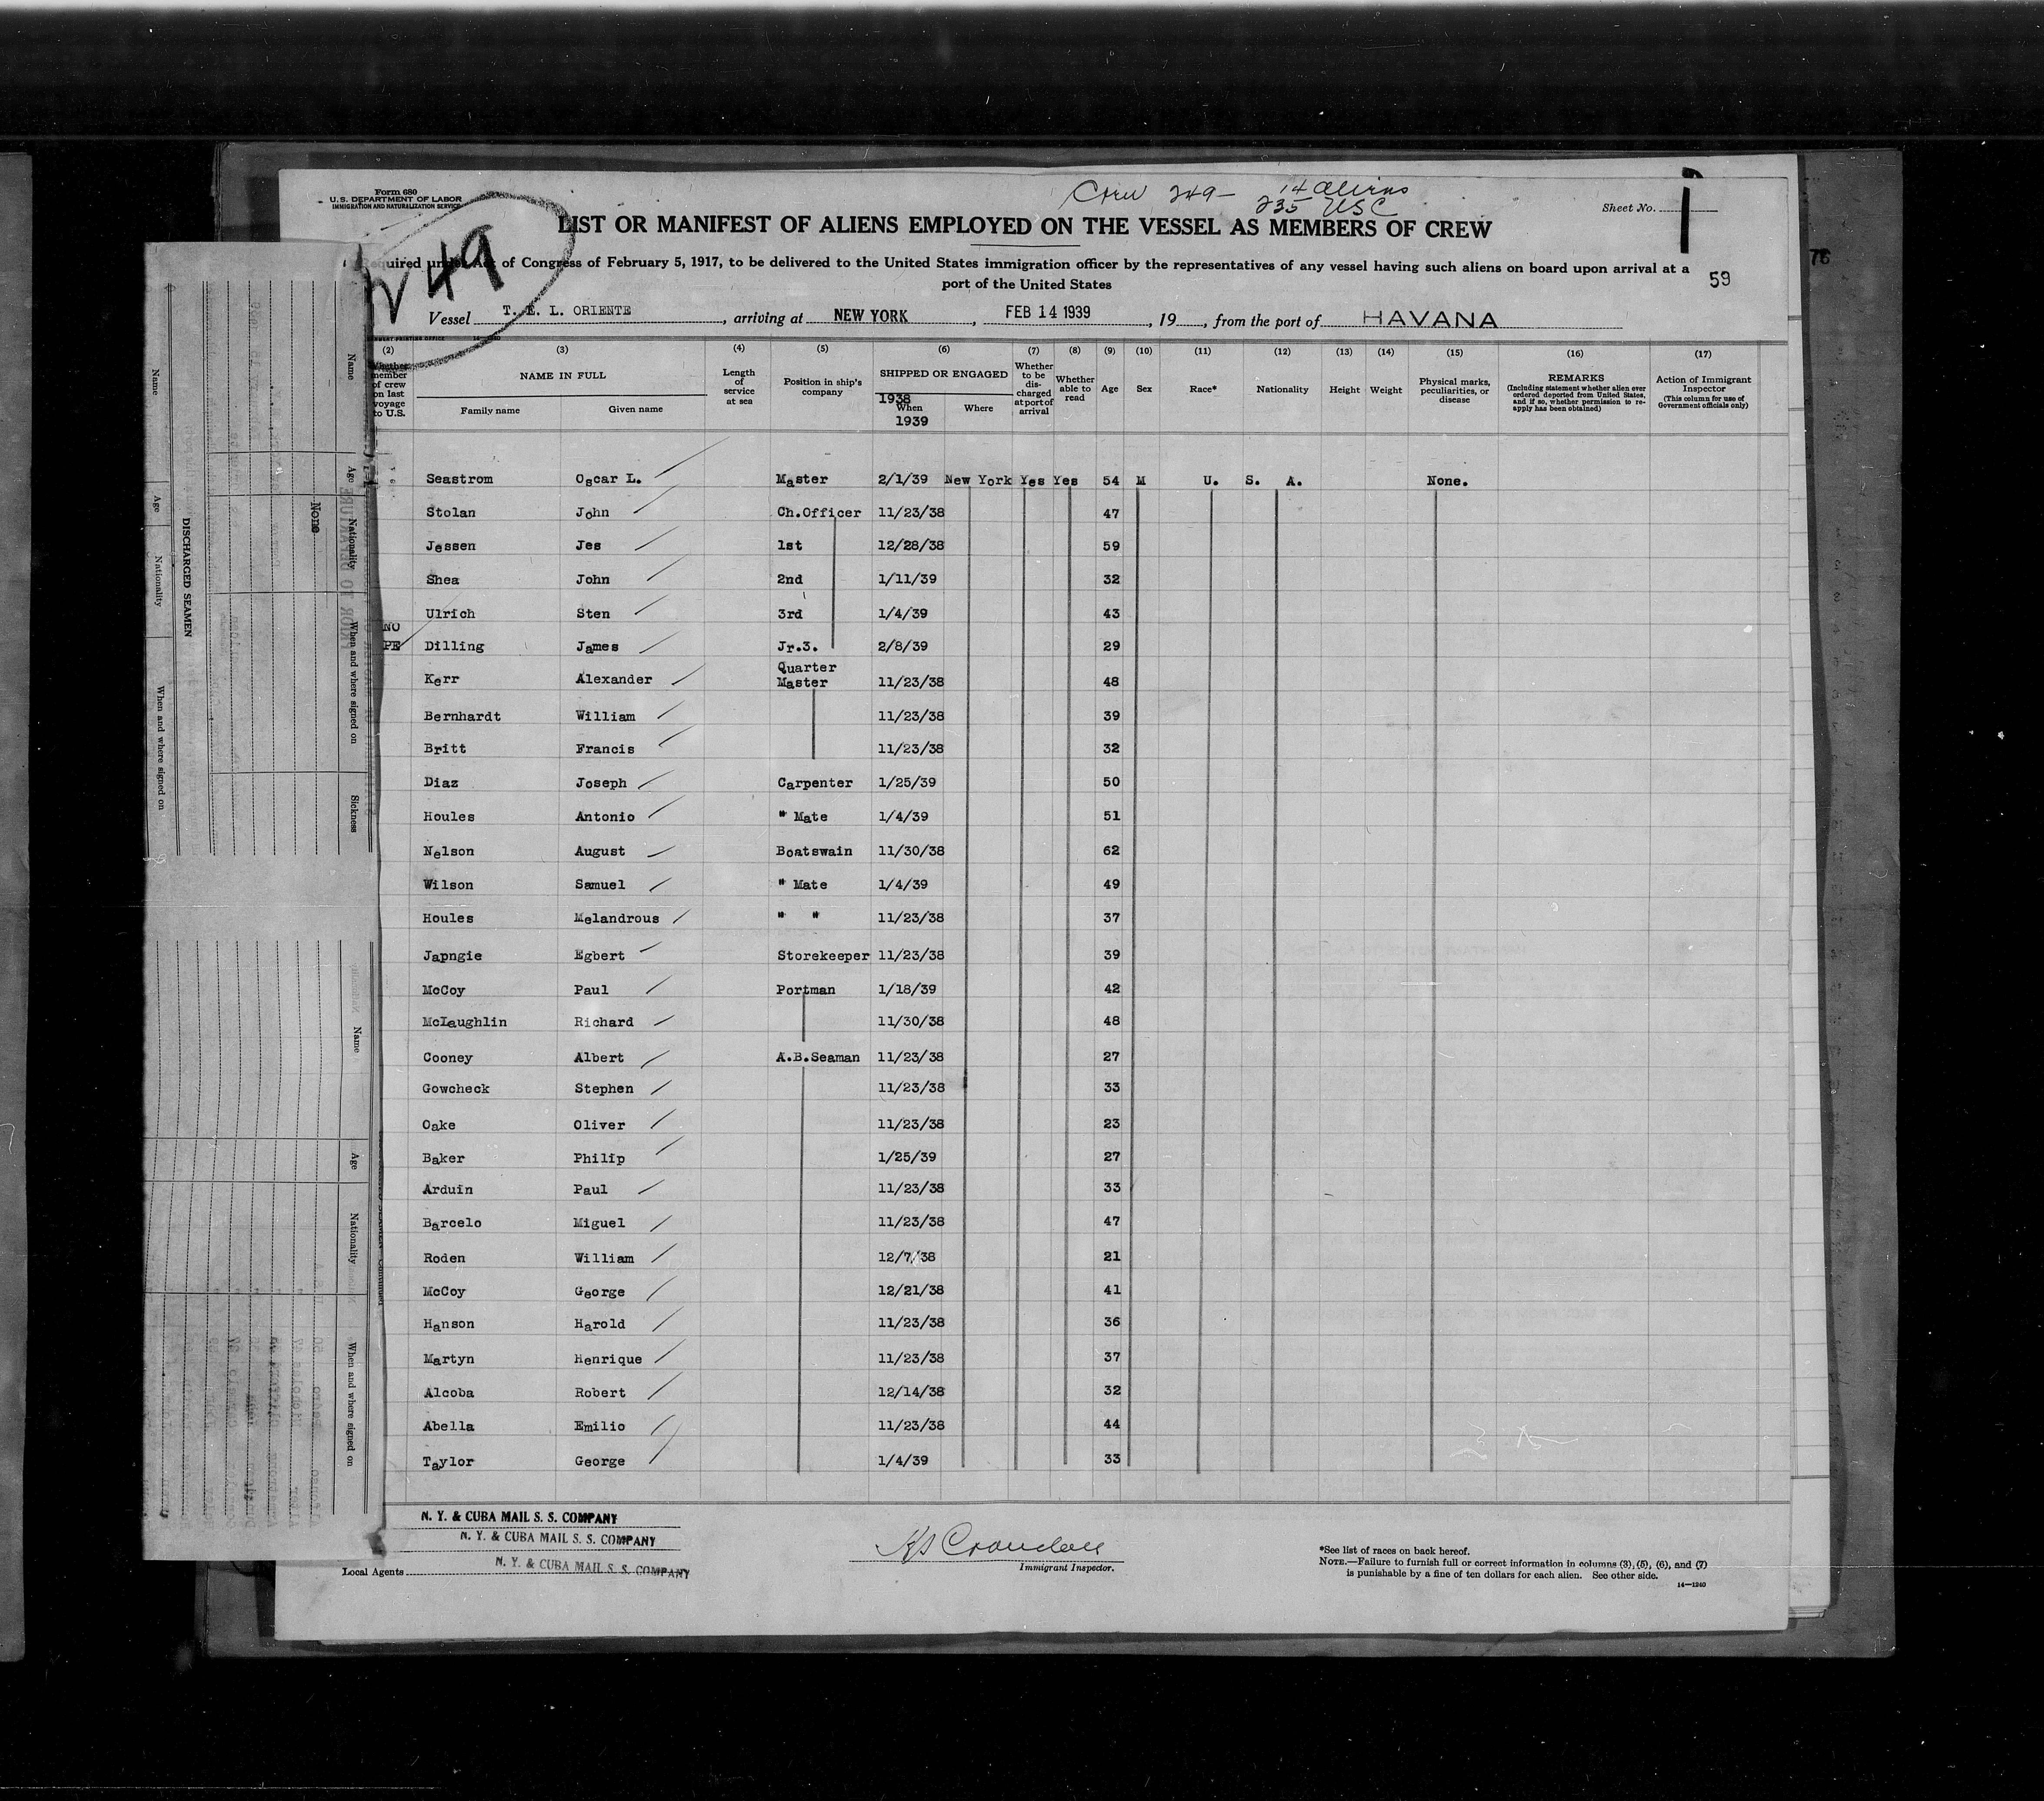 Form 680
U. S. DEPARTMENT OF LABOR
IMMIGRATION AND NATURALIZATION SERVICE
Crew 249- 14 Aliens
235 USC
Sheet No. 1
LIST OR MANIFEST OF ALIENS EMPLOYED ON THE VESSEL AS MEMBERS OF CREW
249
Required under Act of Congress of February 5, 1917, to be delivered to the United States immigration officer by the representatives of any vessel having such aliens on board upon arrival at a
port of the United States
59
76
Vessel T. E. L. ORIENTE, arriving at NEW YORK, FEB 14 1939, 19, from the port of HAVANA
(2) (3) (4) (5) (6) (7) (8) (9) (10) (11) (12) (13) (14) (15) (16) (17)
Whether member of crew on last voyage to U.S.
NAME IN FULL
Family name Given name
Length of service at sea
Position in ship's company
SHIPPED OR ENGAGED
1938
When Where
1939
Whether to be discharged at port of arrival
Whether able to read
Age
Sex
Race*
Nationality
Height
Weight
Physical marks, peculiarities, or disease
REMARKS
(Including statement whether alien ever ordered deported from United States, and if so, whether permission to reapply has been obtained)
Action of Immigrant Inspector
(This column for use of Government officials only)
Seastrom Oscar L. Master 2/1/39 New York Yes Yes 54 M U. S. A. None.
Stolan John Ch.Officer 11/23/38 47
Jessen Jes 1st 12/28/38 59
Shea John 2nd 1/11/39 32
Ulrich Sten 3rd 1/4/39 43
NO
PE Dilling James Jr.3. 2/8/39 29
Kerr Alexander Quarter Master 11/23/38 48
Bernhardt William 11/23/38 39
Britt Francis 11/23/38 32
Diaz Joseph Carpenter 1/25/39 50
Houles Antonio " Mate 1/4/39 51
Nelson August Boatswain 11/30/38 62
Wilson Samuel " Mate 1/4/39 49
Houles Melandrous " " 11/23/38 37
Japngie Egbert Storekeeper 11/23/38 39
McCoy Paul Portman 1/18/39 42
McLaughlin Richard 11/30/38 48
Cooney Albert A.B.Seaman 11/23/38 27
Gowcheck Stephen 11/23/38 33
Oake Oliver 11/23/38 23
Baker Philip 1/25/39 27
Arduin Paul 11/23/38 33
Barcelo Miguel 11/23/38 47
Roden William 12/7/38 21
McCoy George 12/21/38 41
Hanson Harold 11/23/38 36
Martyn Henrique 11/23/38 37
Alcoba Robert 12/14/38 32
Abella Emilio 11/23/38 44
Taylor George 1/4/39 33
N. Y. & CUBA MAIL S. S. COMPANY
N. Y. & CUBA MAIL S. S. COMPANY
Local Agents N. Y. & CUBA MAIL S. S. COMPANY
Immigrant Inspector.
*See list of races on back hereof.
NOTE.—Failure to furnish full or correct information in columns (3), (5), (6), and (7)
is punishable by a fine of ten dollars for each alien. See other side.
14—1240
Name Age Nationality When and where signed on
DISCHARGED SEAMEN
None
Name Age Nationality When and where signed on Sickness
PRIOR TO DEPARTURE
Name Age Nationality When and where signed on